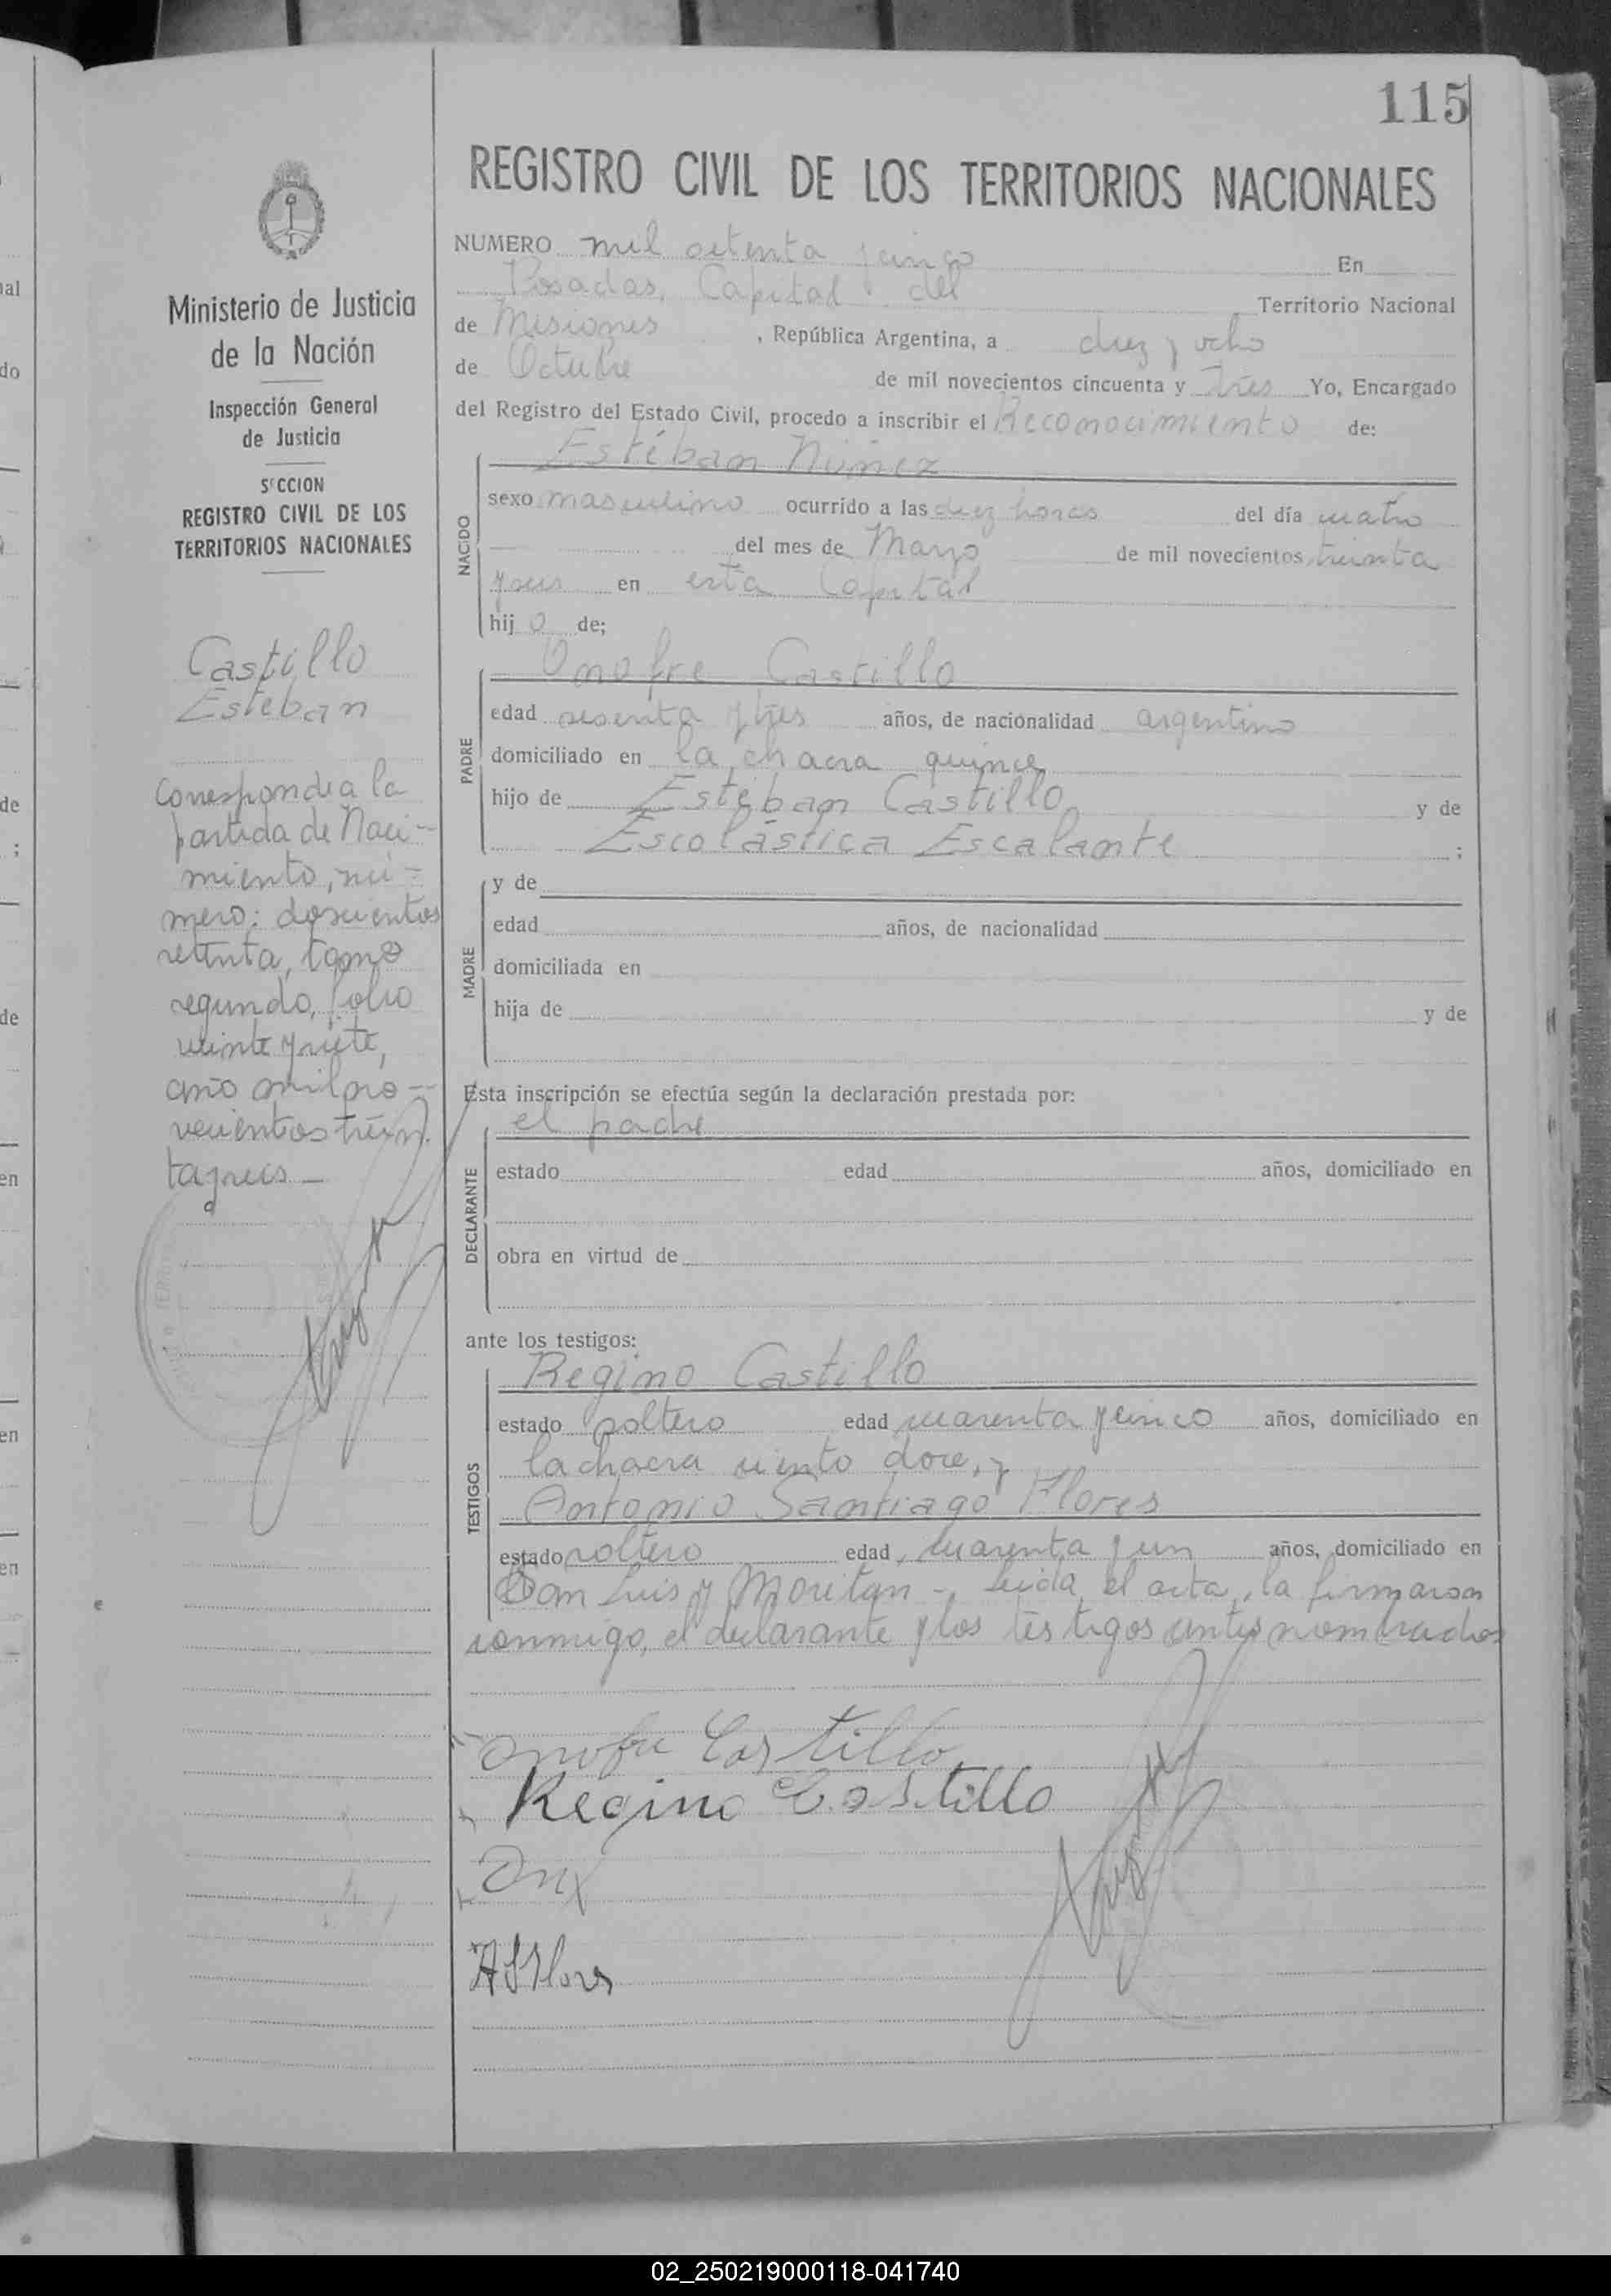 115
REGISTRO CIVIL DE LOS TERRITORIOS NACIONALES
NUMERO mil setenta y cinco En
Posadas, Capital del Territorio Nacional
de Misiones, República Argentina, a diez y ocho
de Octubre de mil novecientos cincuenta y tres Yo, Encargado
del Registro del Estado Civil, procedo a inscribir el Reconocimiento de:
NACIDO
Estéban Núñez
sexo masculino ocurrido a las diez horas del día cuatro
del mes de Marzo de mil novecientos treinta
y seis en esta Capital
hijo de;
PADRE
Onofre Castillo
edad sesenta y tres años, de nacionalidad argentino
domiciliado en la chacra quince
hijo de Estéban Castillo y de
Escolástica Escalante ;
MADRE
y de
edad años, de nacionalidad
domiciliada en
hija de y de
Esta inscripción se efectúa según la declaración prestada por:
DECLARANTE
el padre
estado edad años, domiciliado en
obra en virtud de
ante los testigos:
TESTIGOS
Regino Castillo
estado soltero edad cuarenta y cinco años, domiciliado en
la chacra ciento doce, y
Antonio Santiago Flores
estado soltero edad cuarenta y un años, domiciliado en
San Luis y Moritan -, Leida el acta, la firmaron
conmigo, el declarante y los testigos antes nombrados
Onofre Castillo
Regino Castillo
A S Flores
Ministerio de Justicia
de la Nación
Inspección General
de Justicia
SECCION
REGISTRO CIVIL DE LOS
TERRITORIOS NACIONALES
Castillo
Esteban
Corresponde a la
partida de Naci-
miento, nú-
mero: doscientos
setenta, tomo
segundo, folio
veinte y siete,
año mil no-
vecientos trein
ta y seis -
al
do
de
;
de
en
en
en
02_250219000118-041740